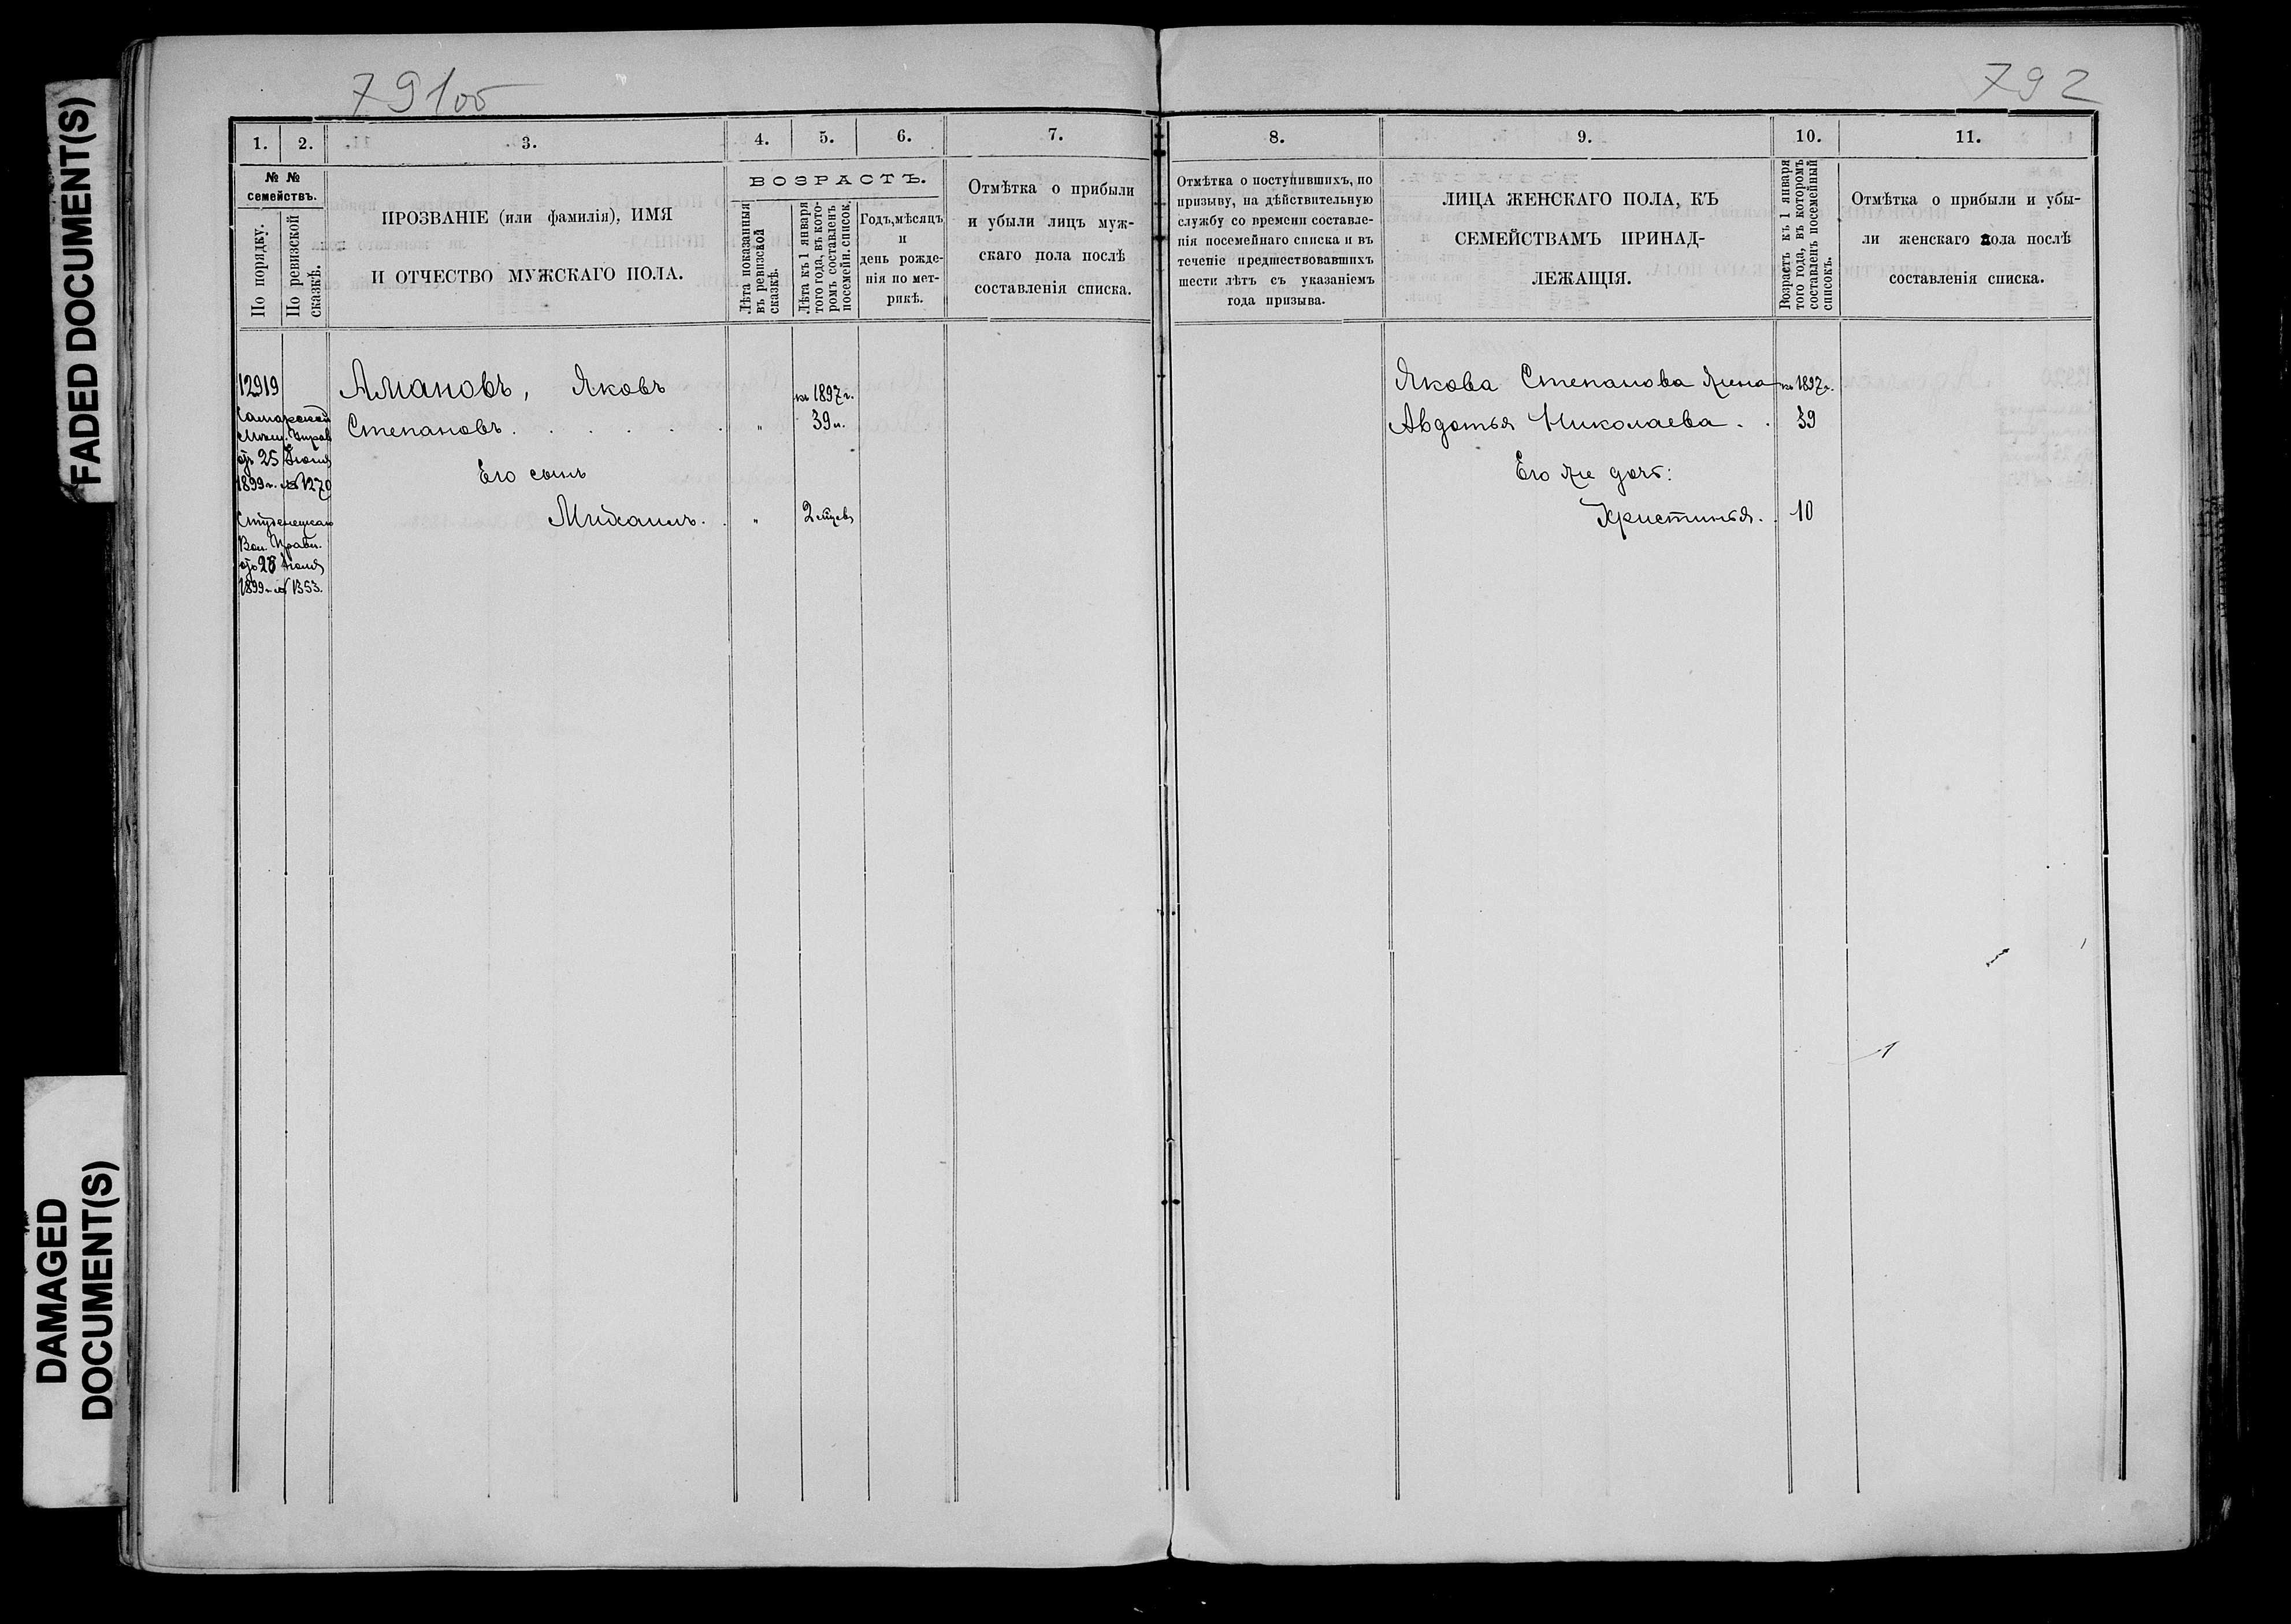 FADED DOCUMENT(S)
DAMAGED
DOCUMENT(S)
791об
792
1.
2.
3.
4.
5.
6.
7.
№ №
семействъ.
По порядку.
По ревизской
сказкѣ.
ПРОЗВАНІЕ (или фамилія), ИМЯ
И ОТЧЕСТВО МУЖСКАГО ПОЛА.
ВОЗРАСТЪ.
Лѣта показанныя
въ ревизской
сказкѣ.
Лѣта къ 1 января
того года, въ кото-
ромъ составленъ
посемейн. список.
Годъ, мѣсяцъ
и
день рожде-
нія по мет-
рикѣ.
Отмѣтка о прибыли
и убыли лицъ муж-
скаго пола послѣ
составленія списка.
12919
Самарской
Мѣщ. Управ
отъ 25 Іюня
1899 г. № 1270
Студенецкаго
Вол. Правл.
отъ 28 Іюня
1899 г. № 1353.
Амановъ, Яковъ
къ 1897 г.
Степановъ . . . . . . „ 39 л.
Его сынъ
Михаилъ. . „ 2 мѣсев
8.
9.
10.
11.
Отмѣтка о поступившихъ, по
призыву, на дѣйствительную
службу со времени составле-
нія посемейнаго списка и въ
теченіе предшествовавшихъ
шести лѣтъ съ указаніемъ
года призыва.
ЛИЦА ЖЕНСКАГО ПОЛА, КЪ
СЕМЕЙСТВАМЪ ПРИНАД-
ЛЕЖАЩІЯ.
Возрастъ къ 1 января
того года, въ которомъ
составленъ посемейный
списокъ.
Отмѣтка о прибыли и убы-
ли женскаго пола послѣ
составленія списка.
Якова Степанова жена къ 1897 г.
Авдотья Николаева . . 39
Его же дочь:
Христинья. . 10